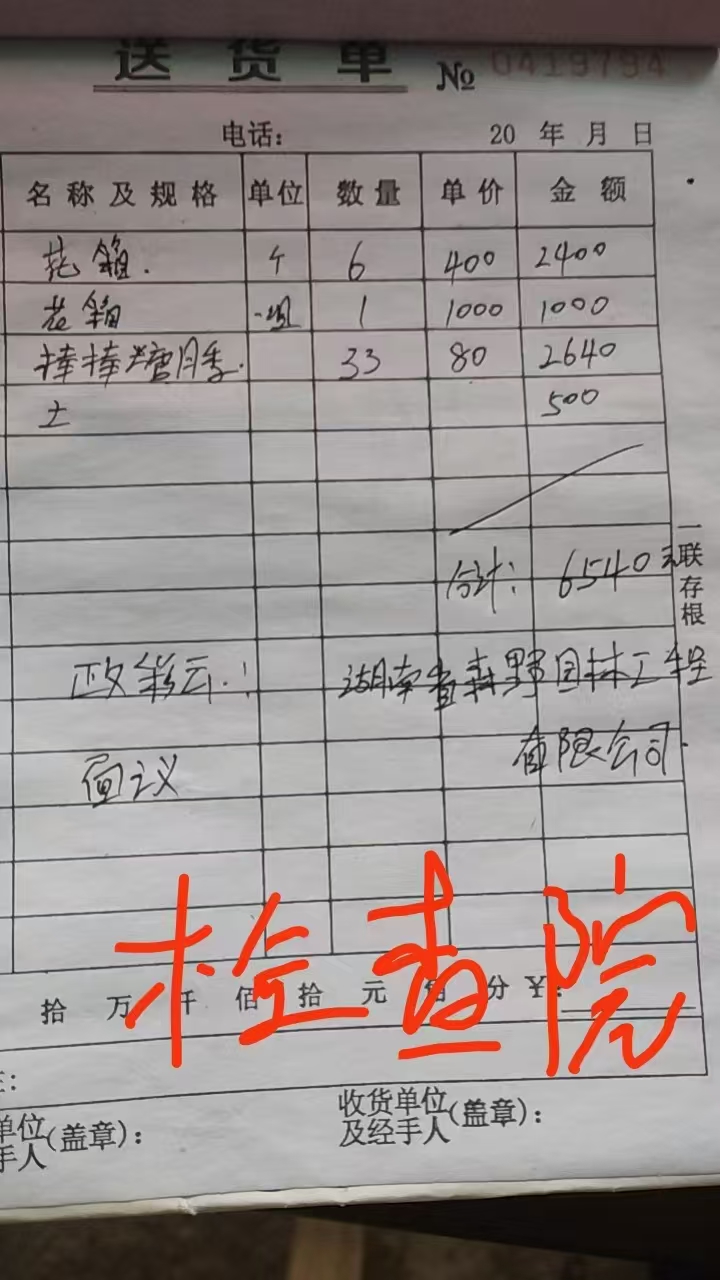 送货单 № 0419794
电话： 20 年 月 日
名称及规格 单位 数量 单价 金额
花箱. 个 6 400 2400
花箱 一组 1 1000 1000
棒棒糖月季. 33 80 2640
土 500
合计： 6540元
一联存根
政彩云.！ 湖南省森野园林工程
面议 有限公司.
检查院
拾 万 仟 佰 拾 元 角 分 ￥：
注：
单位(盖章)： 收货单位(盖章)：
手人 及经手人